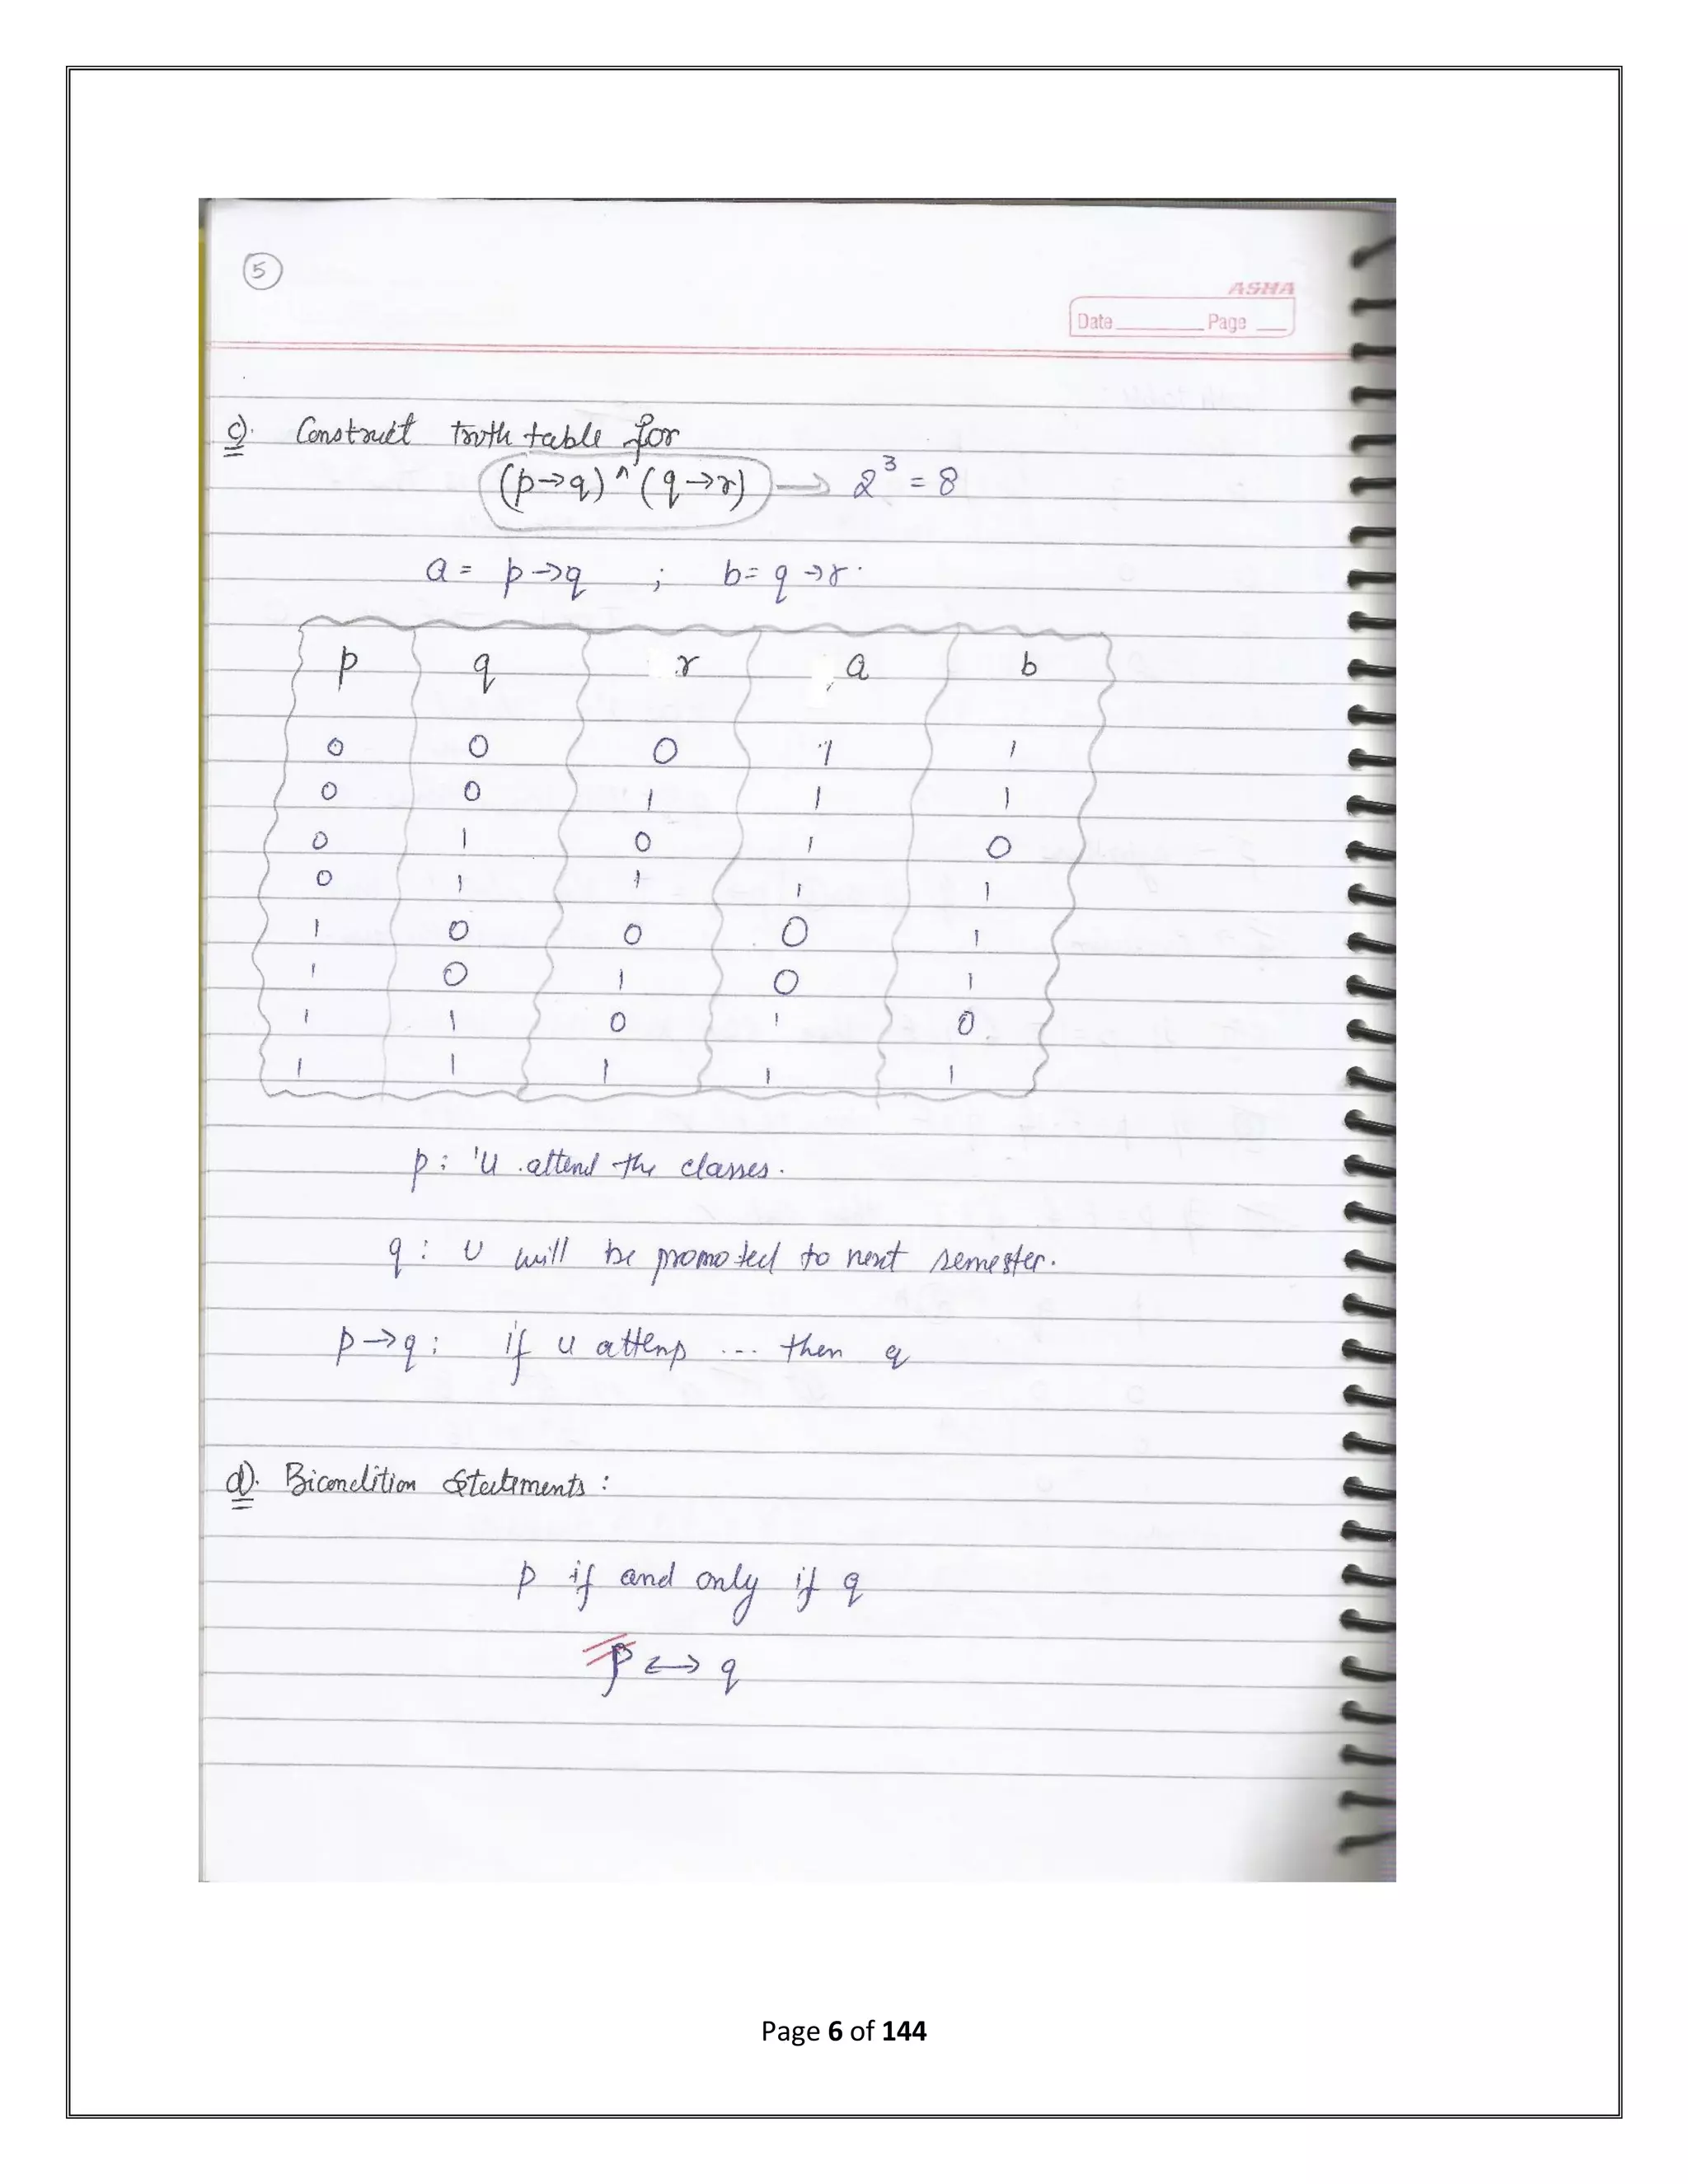 5
ASHA
Date Page
c). Construct truth table for
(p→q) ^ (q→r) → 2³ = 8
a = p→q ; b = q→r.
p q r a b
0 0 0 1 1
0 0 1 1 1
0 1 0 1 0
0 1 1 1 1
1 0 0 0 1
1 0 1 0 1
1 1 0 1 0
1 1 1 1 1
p : 'U attend the classes.
q : U will be promoted to next semester.
p→q : if u attenp ... then q
d). Bicondition Statements :
p if and only if q
p ↔ q
Page 6 of 144